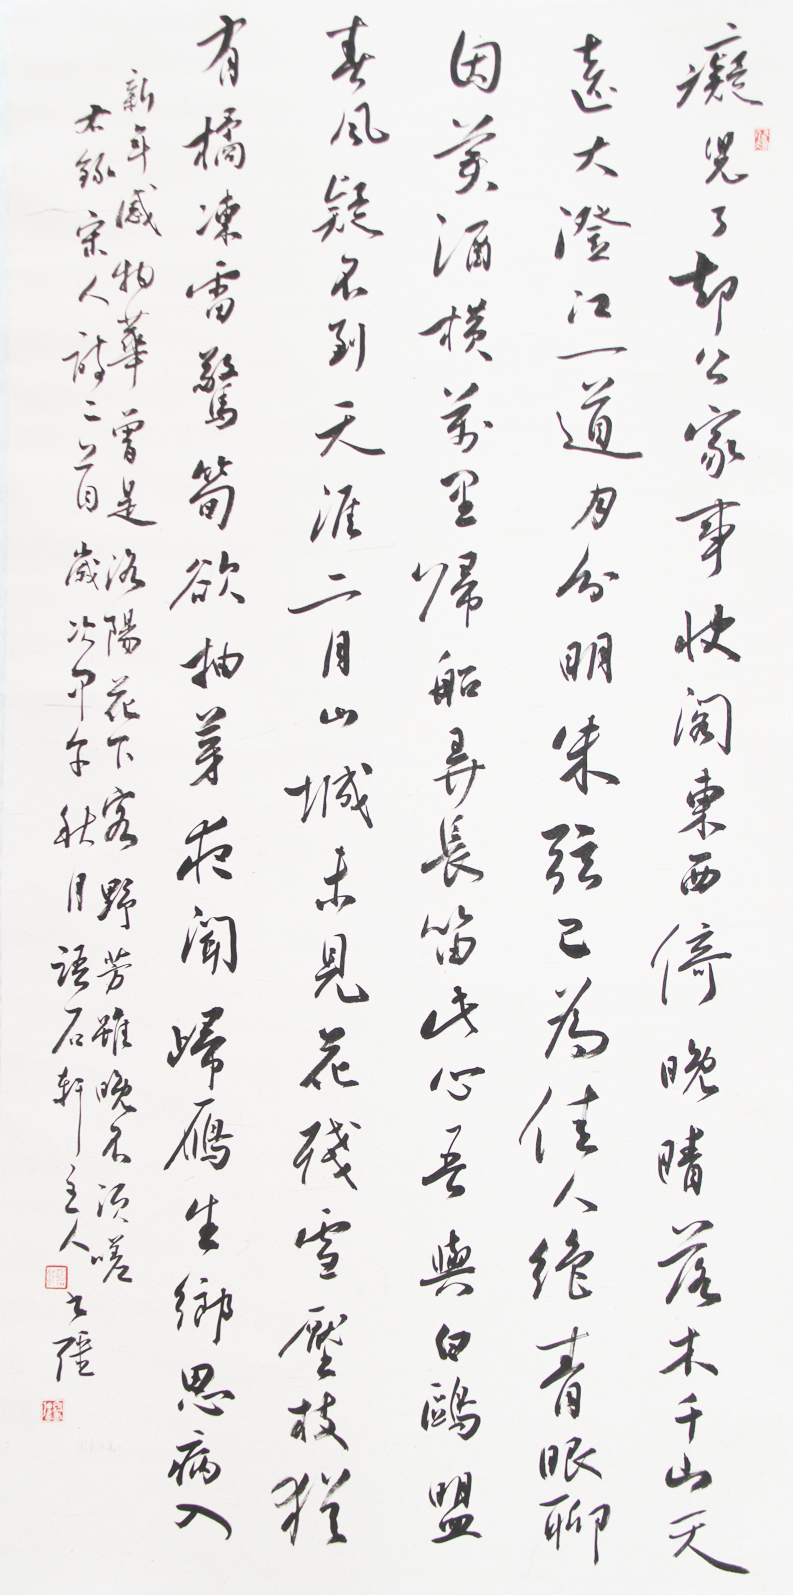 癡兒了却公家事快閣東西倚晚晴落木千山天
遠大澄江一道月分明朱弦已為佳人絶青眼聊
因美酒橫萬里歸船弄長笛此心吾與白鷗盟
春風疑不到天涯二月山城未見花殘雪壓枝猶
有橘凍雷驚筍欲抽芽夜聞歸雁生鄉思病入
新年感物華曾是洛陽花下客野芳雖晚不須嗟
右錄宋人詩二首歲次甲午秋月語石軒主人